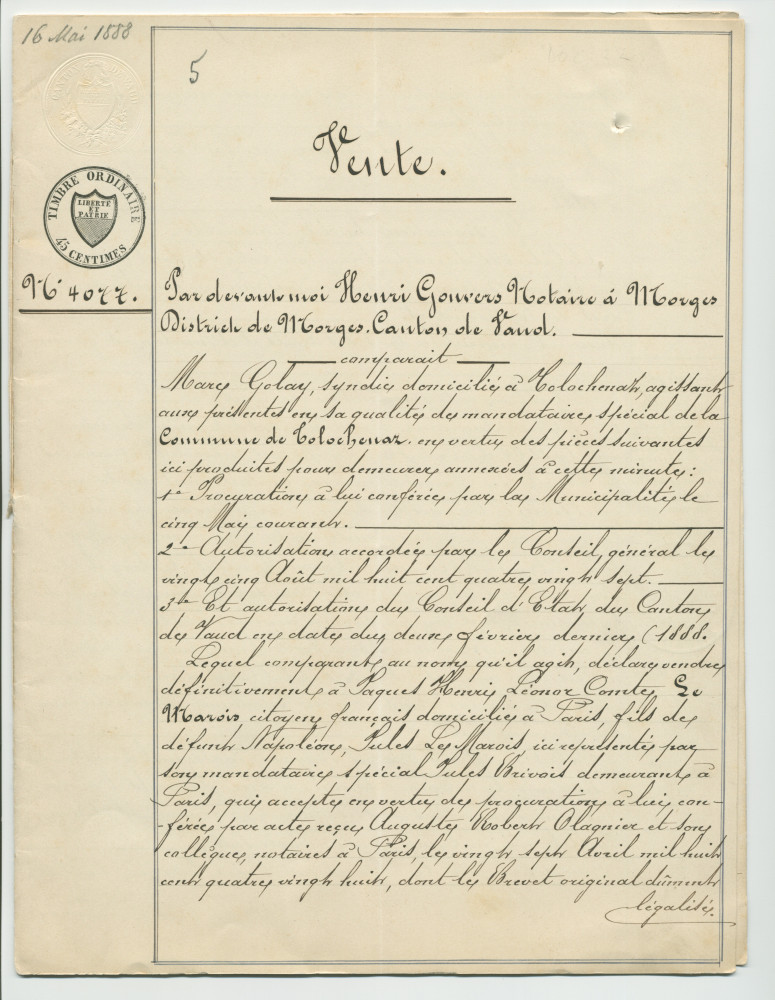 16 Mai 1888
5
Vente.
TIMBRE ORDINAIRE
LIBERTÉ
ET
PATRIE
45 CENTIMES
No 4077.
Par devant moi Henri Gonvers Notaire à Morges
District de Morges. Canton de Vaud.
comparait
Marc Golay, syndic domicilié à Tolochenaz, agissant
aux présentes en sa qualité de mandataire spécial de la
Commune de Tolochenaz. en vertu des pièces suivantes
ici produites pour demeurer annexées à cette minute:
1o Procuration à lui conférée par la Municipalité le
cinq Mai courant.
2o Autorisation accordée par le Conseil général le
vingt cinq Août mil huit cent quatre vingt sept.
3o Et autorisation du Conseil d'Etat du Canton
de Vaud en date du deux février dernier (1888.
Lequel comparant, au nom qu'il agit, déclare vendre
définitivement à Jaques Henri Léonor Comte Le
Marois citoyen français domicilié à Paris, fils de
défunt Napoléon, Jules Le Marois, ici représenté par
son mandataire spécial Jules Brivois demeurant à
Paris, qui accepte en vertu de procuration à lui con-
-férée par acte reçu Auguste Robert Olagnier et son
collègue, notaires à Paris, le vingt sept Avril mil huit
cent quatre vingt huit, dont le Brevet original dûment
légalisé.